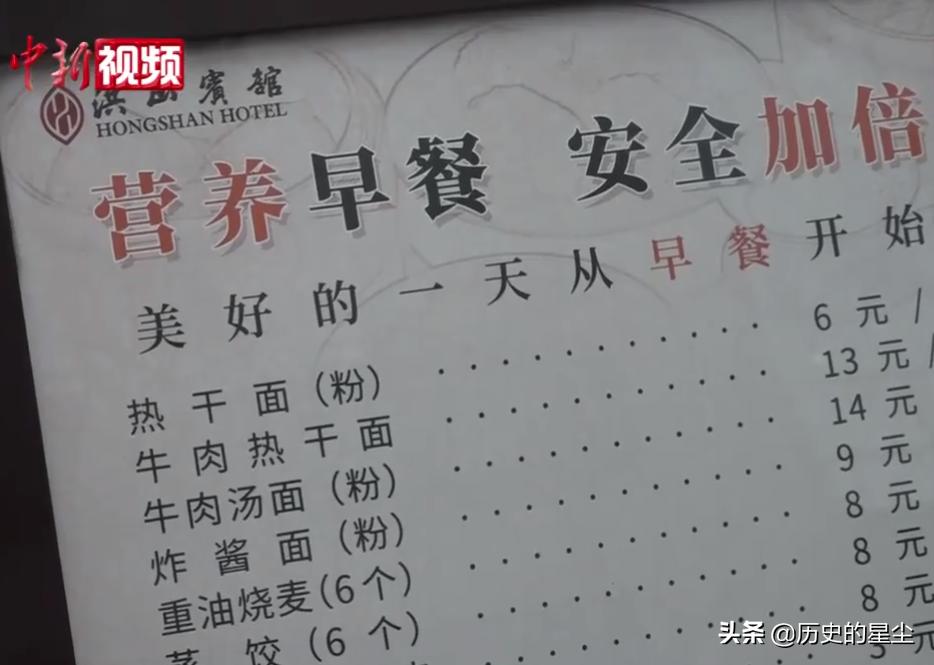 中新视频
洪山賓館
HONGSHAN HOTEL
营养早餐 安全加倍
美好的一天从早餐开始
热干面(粉) ············ 6元/
牛肉热干面 ············ 13元/
牛肉汤面(粉) ············ 14元
炸酱面(粉) ············ 9元
重油烧麦(6个) ············ 8元
蒸饺(6个) ············ 8元
8元
3元
头条 @历史的星尘